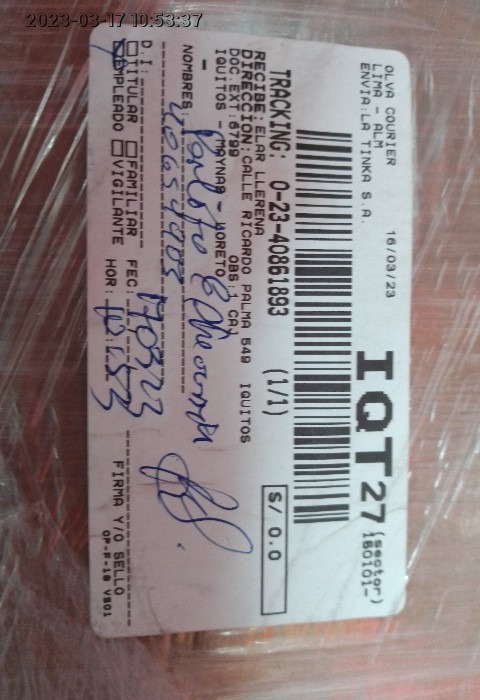 2023-03-17 10:53:37
OLVA COURIER 16/03/23
LIMA - ALM
ENVIA:LA TINKA S.A.
IQT 27 (sector)
160101-
TRACKING: 0-23-40861893 (1/1)
S/ 0.0
RECIBE:ELAR LLERENA
DIRECCION:CALLE RICARDO PALMA 549 IQUITOS
DOC.EXT:6799 OBS:1 CAJ
IQUITOS - MAYNAS - LORETO
-
NOMBRES:
D.I:
TITULAR FAMILIAR FEC: 170323
EMPLEADO VIGILANTE HOR: 10:53
FIRMA Y/O SELLO
OP-F-18 VS01